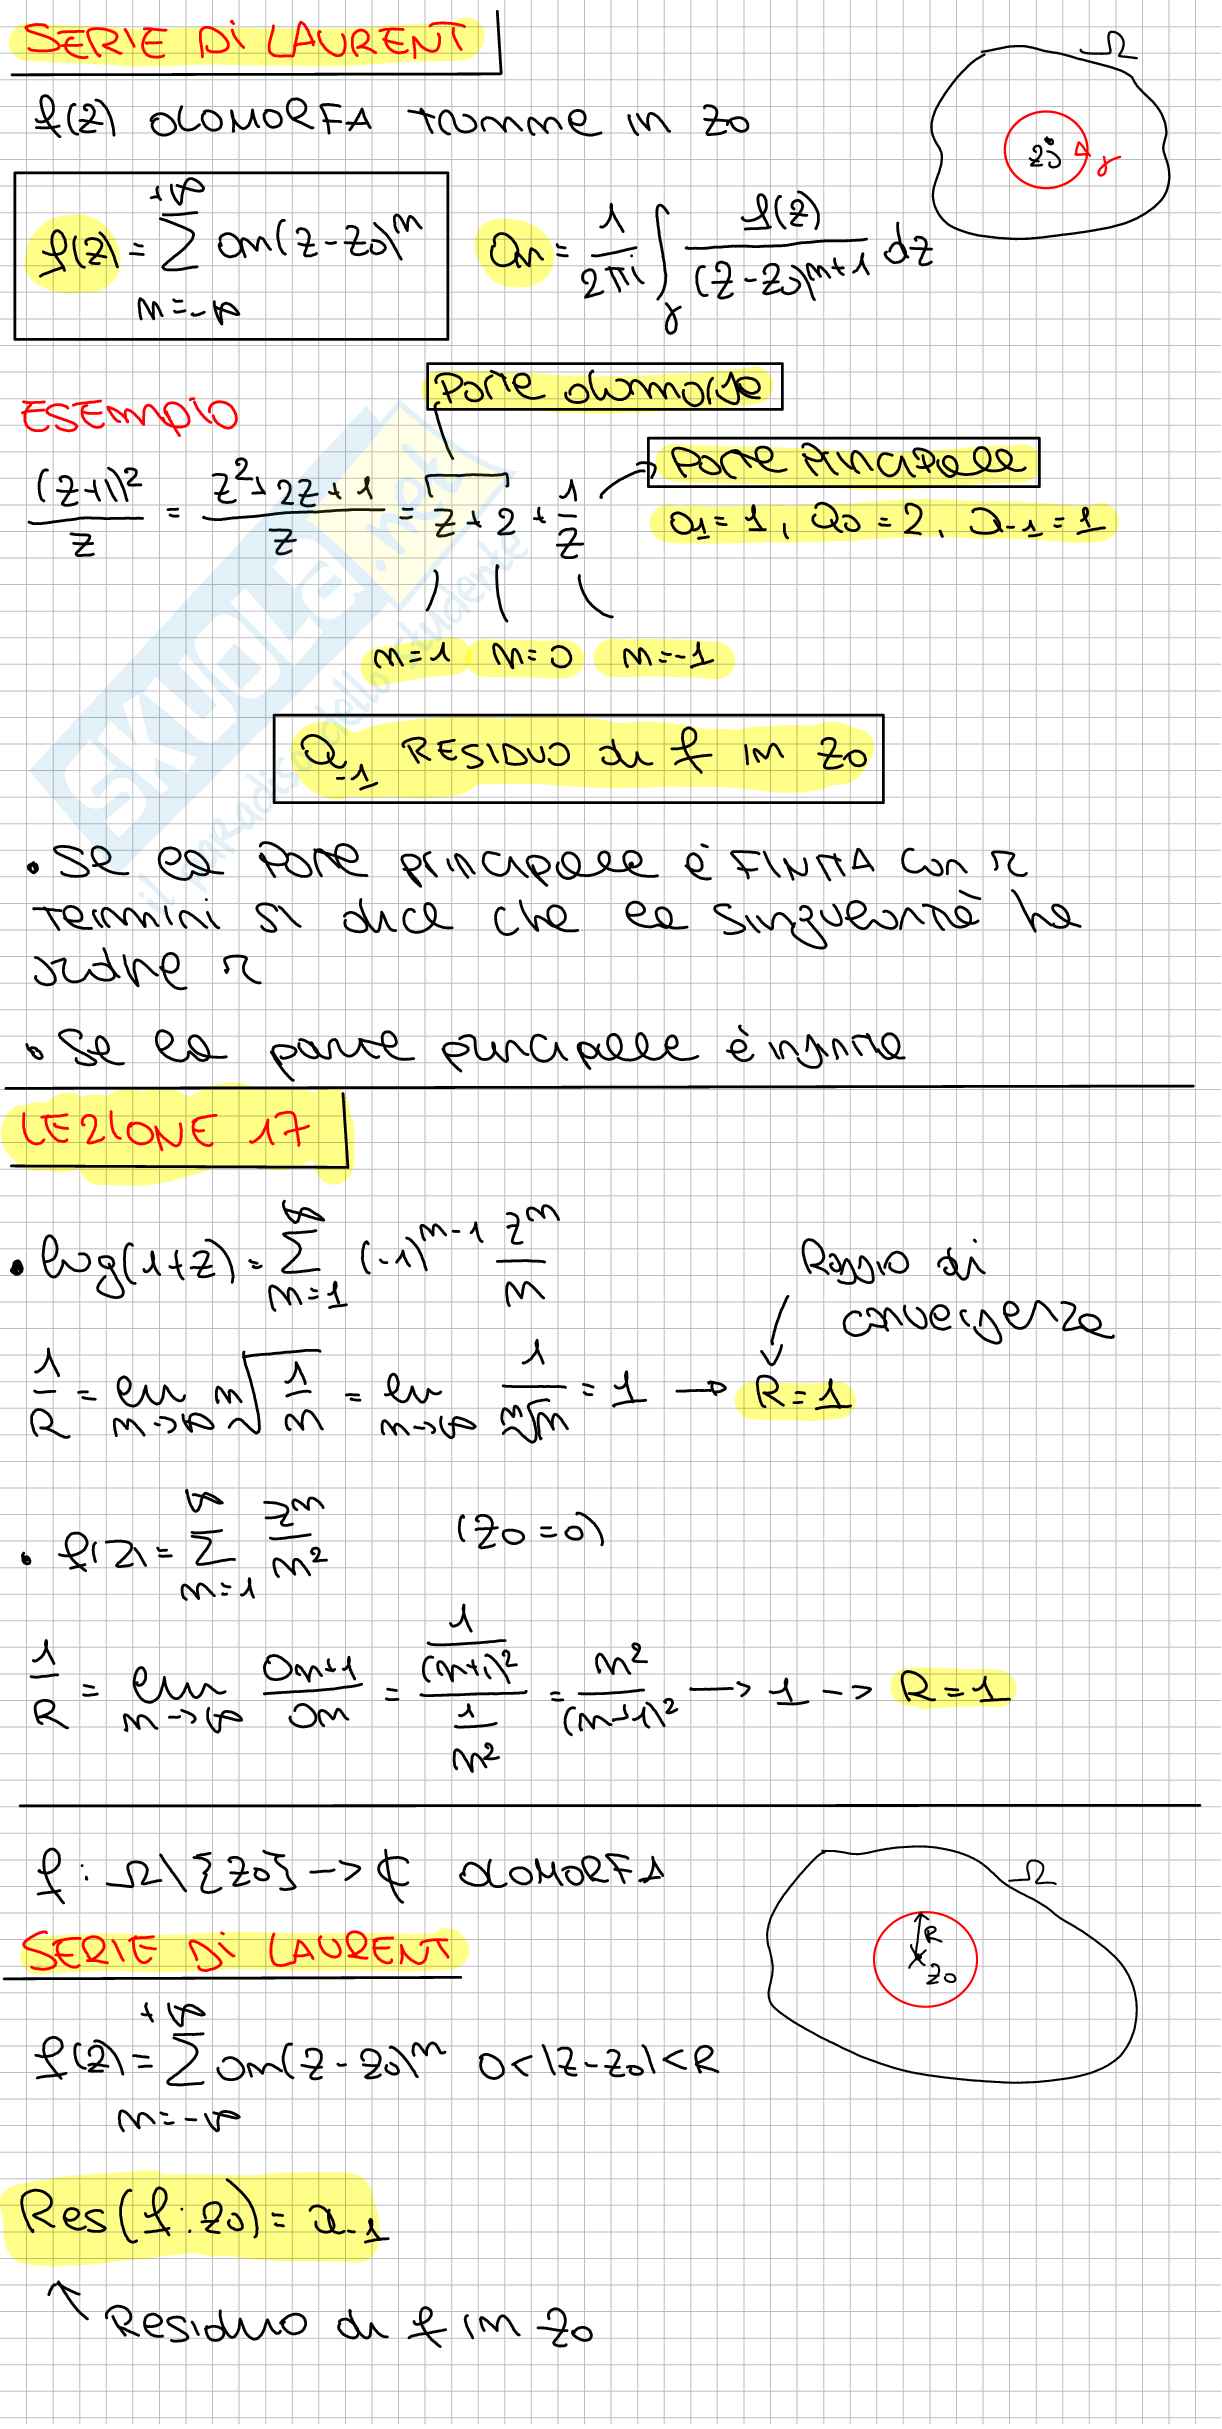 SERIE DI LAURENT
f(z) OLOMORFA tranne in z₀
Ω
z₀ γ
f(z) = ∑_{n=-∞}^{+∞} an(z-z₀)ⁿ   an = 1/(2πi) ∫_γ f(z)/(z-z₀)ⁿ⁺¹ dz
Parte olomorfa
ESEMPIO
Parte Principale
(z+1)²/z = (z²+2z+1)/z = z + 2 + 1/z
a₁ = 1, a₀ = 2, a₋₁ = 1
n=1 n=0 n=-1
a₋₁ RESIDUO di f in z₀
• Se la Parte principale è FINITA con r
termini si dice che la singolarità ha
ordine r
• Se la parte principale è infinita
LEZIONE 17
• log(1+z) = ∑_{n=1}^{∞} (-1)ⁿ⁻¹ zⁿ/n
Raggio di
convergenza
1/R = lim_{n→∞} ⁿ√(1/n) = lim_{n→∞} 1/ⁿ√n = 1 → R=1
• f(z) = ∑_{n=1}^{∞} zⁿ/n²   (z₀=0)
1/R = lim_{n→∞} an+1/an = (1/(n+1)²)/(1/n²) = n²/(n+1)² → 1 → R=1
f: Ω\{z₀} → ℂ OLOMORFA
Ω
R
z₀
SERIE DI LAURENT
f(z) = ∑_{n=-∞}^{+∞} an(z-z₀)ⁿ 0<|z-z₀|<R
Res(f:z₀) = a₋₁
↑ Residuo di f in z₀
SKUOLA.net
il paradiso dello studente